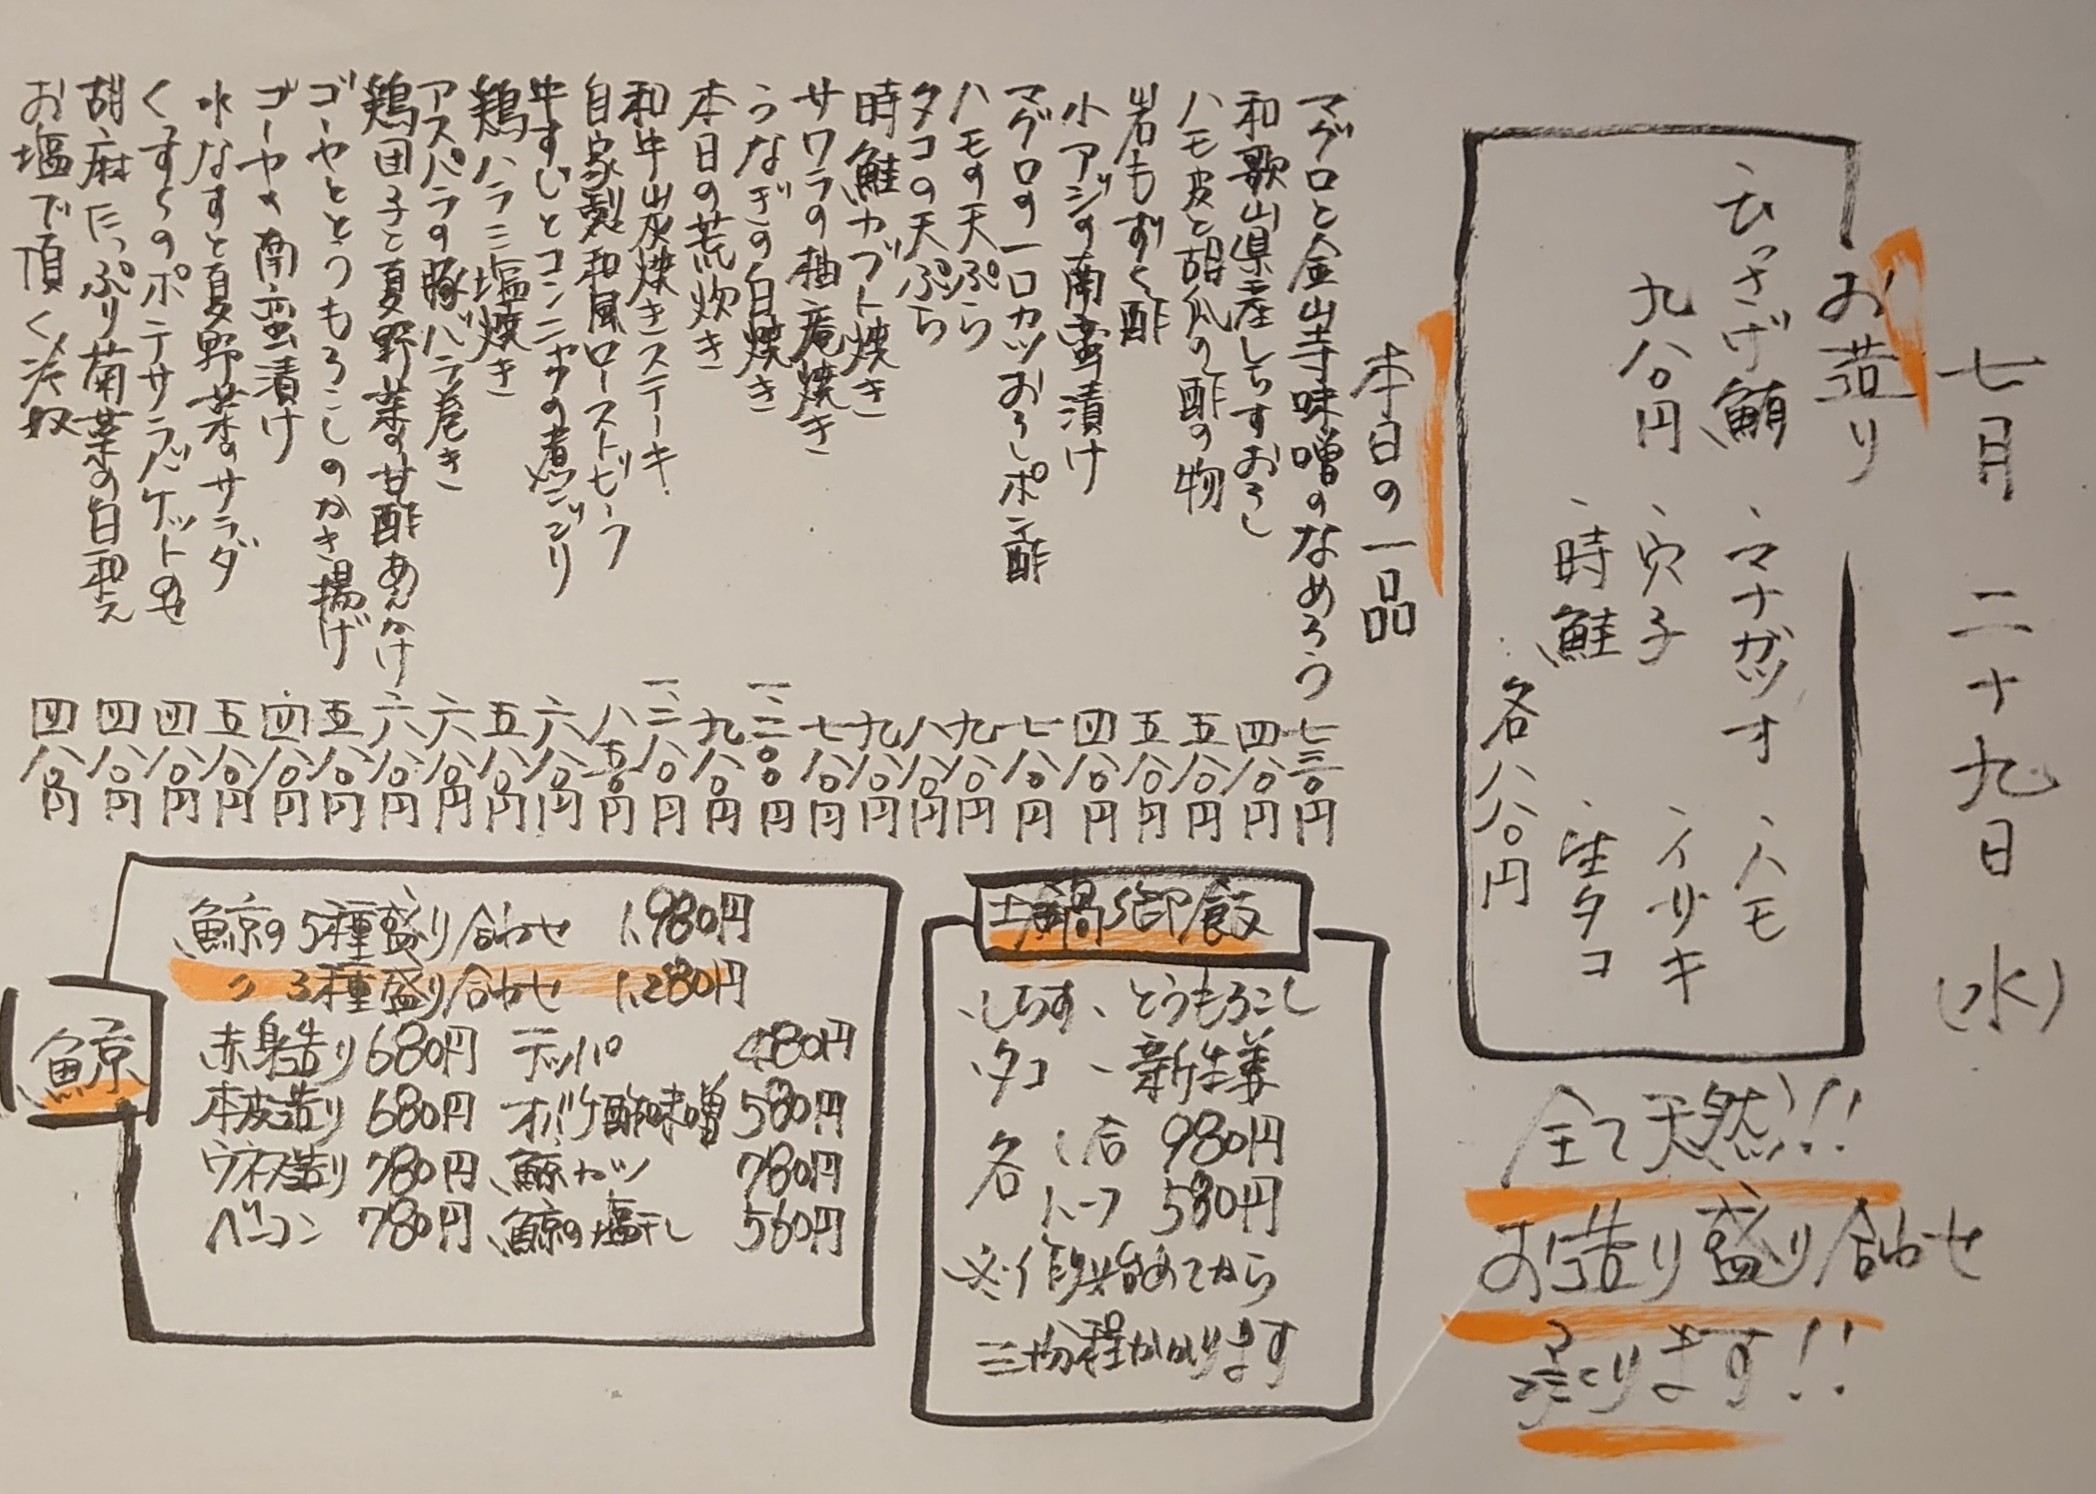 七月二十九日(水)
お造り
、ひっさげ鮪
九八〇円
、マナガツオ
、ハモ
、穴子
、イサキ
、時鮭
、生タコ
各八八〇円
全て天然!!
お造り盛り合わせ
承ります!!
本日の一品
マグロと金山寺味噌のなめろう 七三〇円
和歌山県産しらすおろし 四八〇円
ハモ皮と胡瓜の酢の物 五八〇円
岩もずく酢 五八〇円
小アジの南蛮漬け 四八〇円
マグロの一口カツおろしポン酢 七八〇円
ハモの天ぷら 九八〇円
タコの天ぷら 八八〇円
時鮭カブト焼き 九八〇円
サワラの柚庵焼き 七八〇円
うなぎの白焼き 一、二〇〇円
本日の荒炊き 九八〇円
和牛炭焼きステーキ 一、二八〇円
自家製和風ローストビーフ 八五〇円
牛すじとコンニャクの煮こごり 六八〇円
鶏ハラミ塩焼き 五八〇円
アスパラの豚バラ巻き 六八〇円
鶏団子と夏野菜の甘酢あんかけ 六八〇円
ゴーヤととうもろこしのかき揚げ 五八〇円
ゴーヤの南蛮漬け 四八〇円
水なすと夏野菜のサラダ 五八〇円
くずしのポテサラバケットのせ 四八〇円
胡麻たっぷり菊菜の白和え 四八〇円
お塩で頂く冷奴 四八〇円
土鍋御飯
、しらす 、とうもろこし
、タコ 、新生姜
各 1合 980円
ハーフ 580円
※作り始めてから
三十分程かかります
鯨
鯨の5種盛り合わせ 1,980円
〃 3種盛り合わせ 1,280円
赤身造り 680円 テッパ 480円
本皮造り 680円 オバケ酢味噌 580円
ウネス造り 780円 鯨カツ 780円
ベーコン 780円 鯨の塩干し 560円